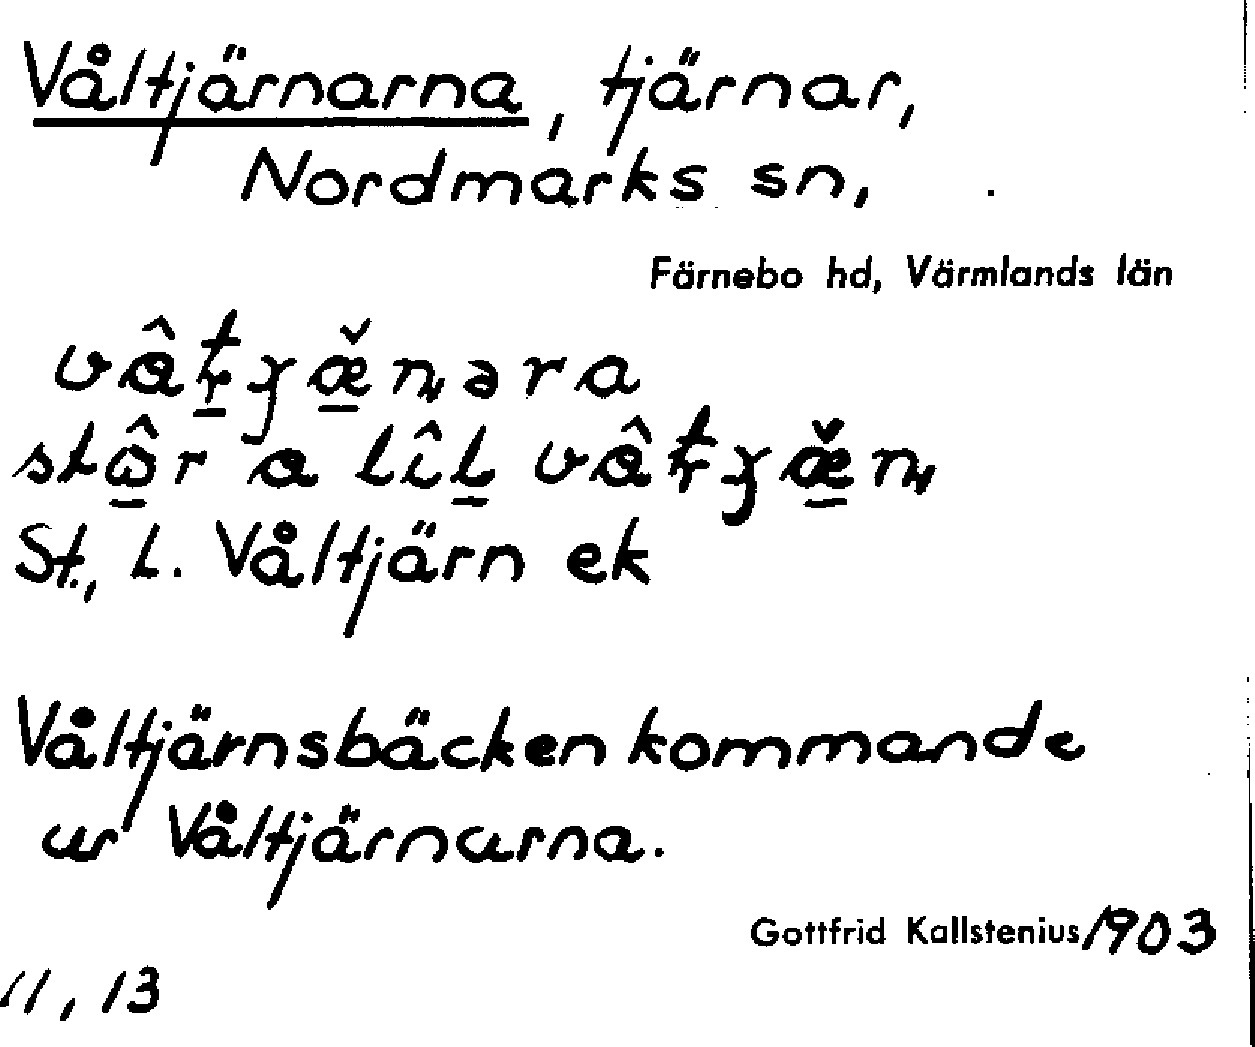 Våltjärnarna, tjärnar,
Nordmarks sn,
Färnebo hd, Värmlands län
St., L. Våltjärn ek
Våltjärnsbäcken kommande
ur Våltjärnarna.
Gottfrid Kallstenius 1903
11, 13